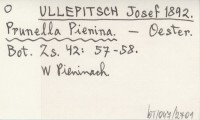 O ULLEPITSCH Josef 1892.
Prunella Pienina. — Oester.
Bot. Zs. 42: 57-58.
W Pieninach.